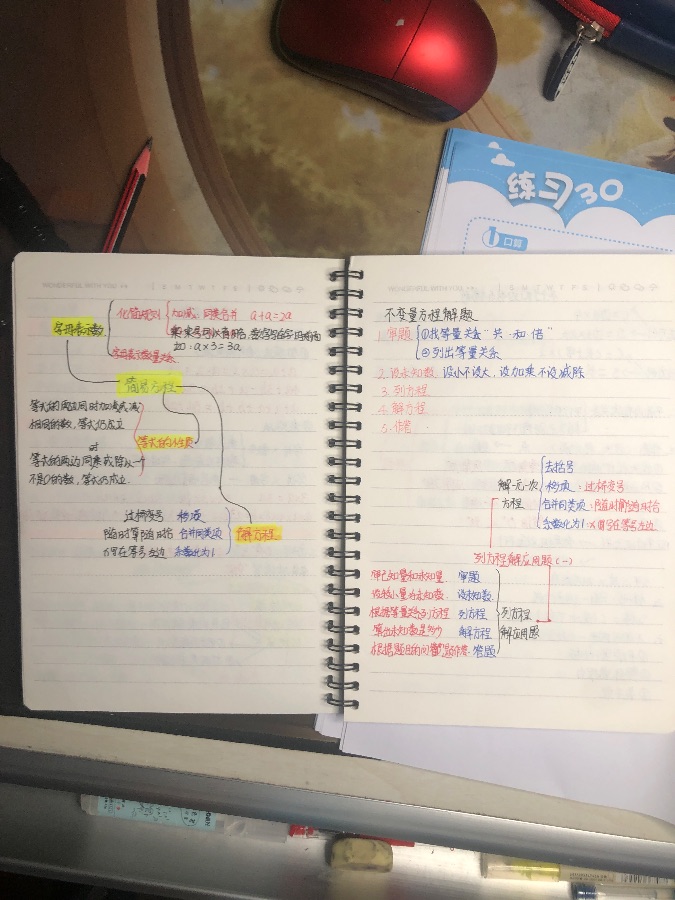 练习30
1 口算
字母表示数
化简规则
加减：同类合并 a+a=2a
乘：乘号可以省略，数字写在字母前面
如：a×3=3a
字母表示数量关系
简易方程
等式的两边同时加减或减
相同的数，等式仍成立
等式的性质
等式的两边同时乘或除以一个
不是0的数，等式仍成立.
过桥变号 移项
随时算随时拾 合并同类项
值写在等号左边 系数化为1
解方程
不变量方程解题
1. 审题 ①找等量关系"共·和·倍"
②列出等量关系
2. 设未知数 设小不设大，设加乘不设减除
3. 列方程
4. 解方程
5. 作答
解一元一次
方程
去括号
移项：过桥变号
合并同类项：随时算随时拾
系数化为1：x值写在等号左边
列方程解应用题（一）
审已知量和未知量 审题
设较小量为未知数 设未知数
根据等量关系列方程 列方程
算出未知数是多少 解方程
根据题目的问题作答 答题
列方程
解应用题